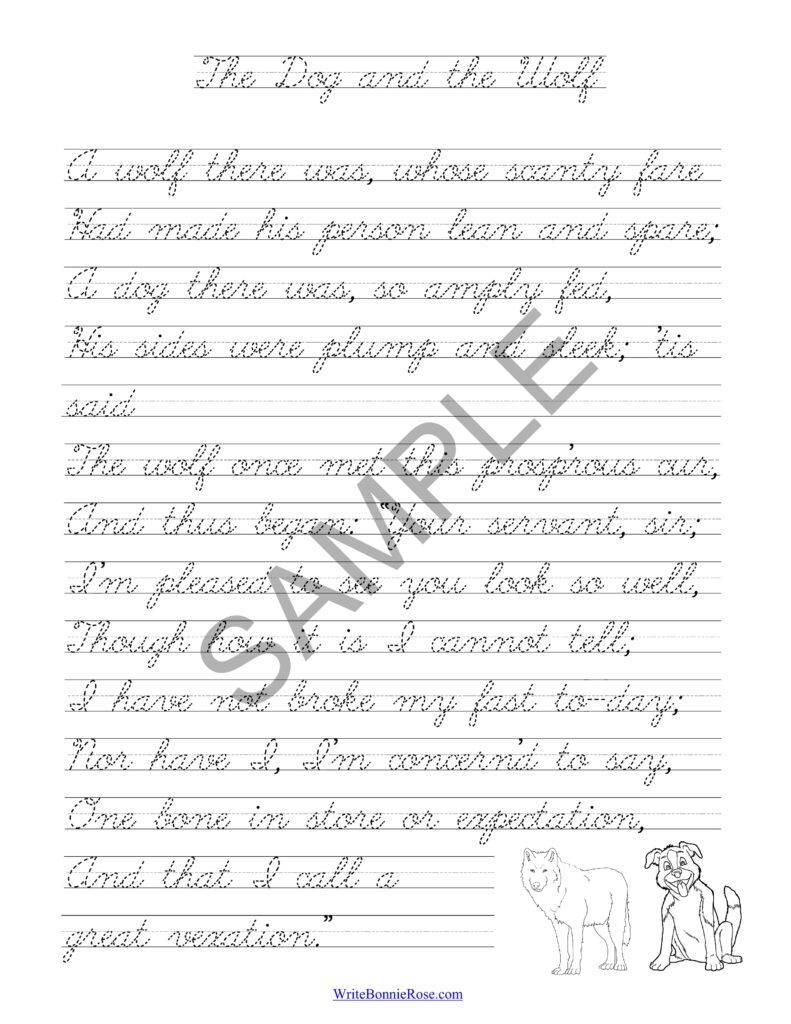 The Dog and the Wolf
A wolf there was, whose scanty fare
Had made his person lean and spare;
A dog there was, so amply fed,
His sides were plump and sleek; 'tis
said
The wolf once met this prosp'rous cur,
And thus began: "Your servant, sir;
I'm pleased to see you look so well,
Though how it is I cannot tell;
I have not broke my fast to-day;
Nor have I, I'm concern'd to say,
One bone in store or expectation,
And that I call a
great vexation."
SAMPLE
WriteBonnieRose.com